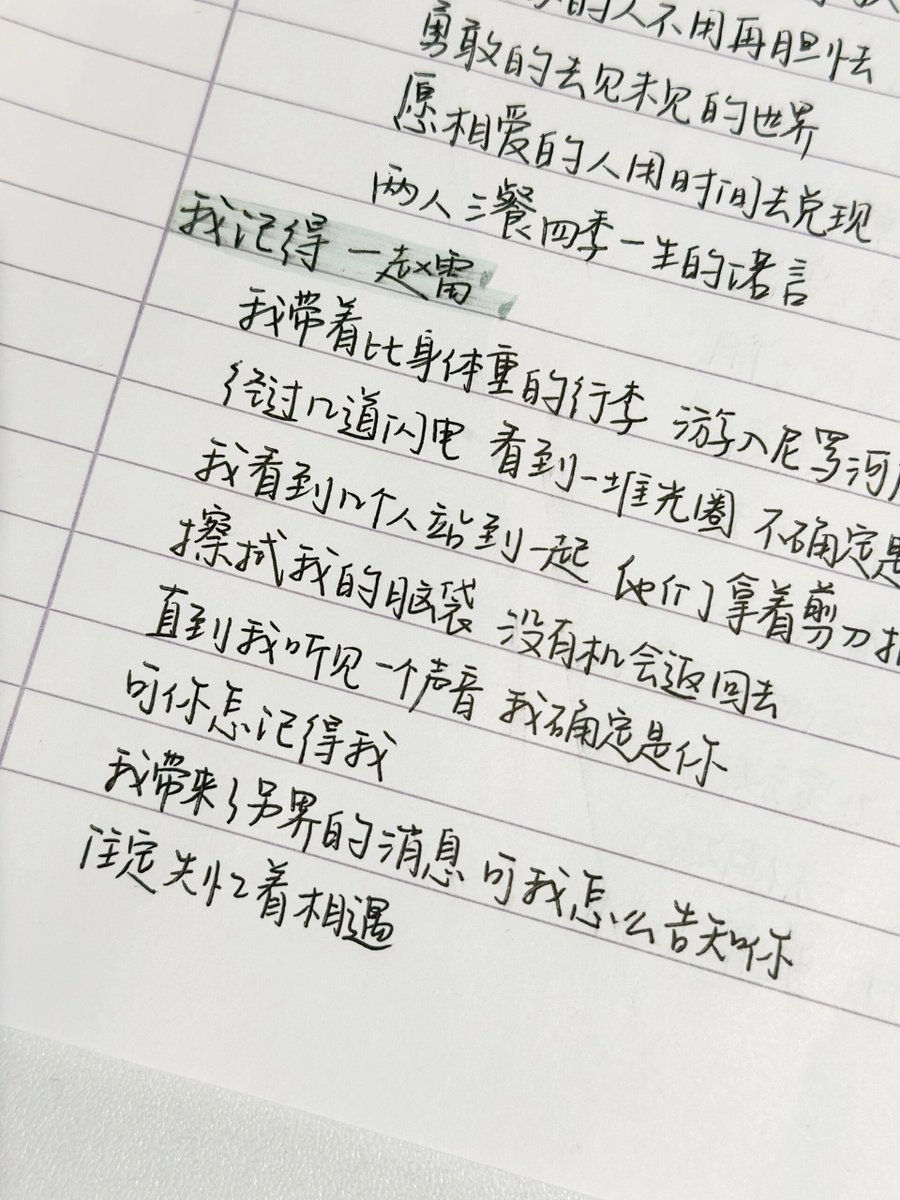 的人不用再胆怯
勇敢的去见未见的世界
愿相爱的人用时间去兑现
两人三餐四季一生的诺言
我记得 一赵雷
我带着比身体重的行李 游入尼罗河
经过几道闪电 看到一堆光圈 不确定是
我看到几个人站到一起 他们拿着剪刀
擦拭我的脑袋 没有机会返回去
直到我听见一个声音 我确定是你
可你怎记得我
我带来了另界的消息 可我怎么告知你
注定失忆着相遇